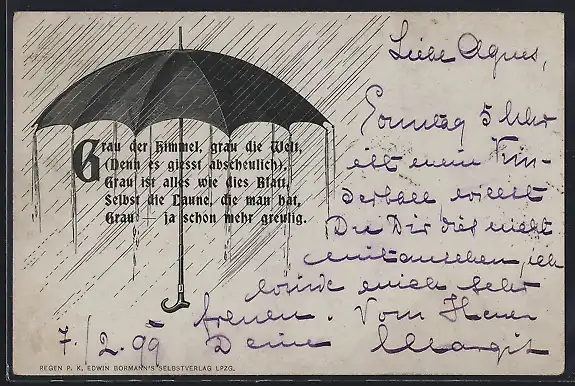 Grau der Himmel, grau die Welt,
(Denn es giesst abscheulich),
Grau ist alles wie dies Blatt,
Selbst die Laune, die man hat,
Grau — ja schon mehr greulig.
Liebe Agnes,
Sonntag 5 Uhr
ist mein Kin-
derball, willst
Du Dir dies nicht
mitansehen, ich
würde mich sehr
freuen. Von Herzen
Deine Margit
7./2. 99
REGEN P. K. EDWIN BORMANN'S SELBSTVERLAG LPZG.